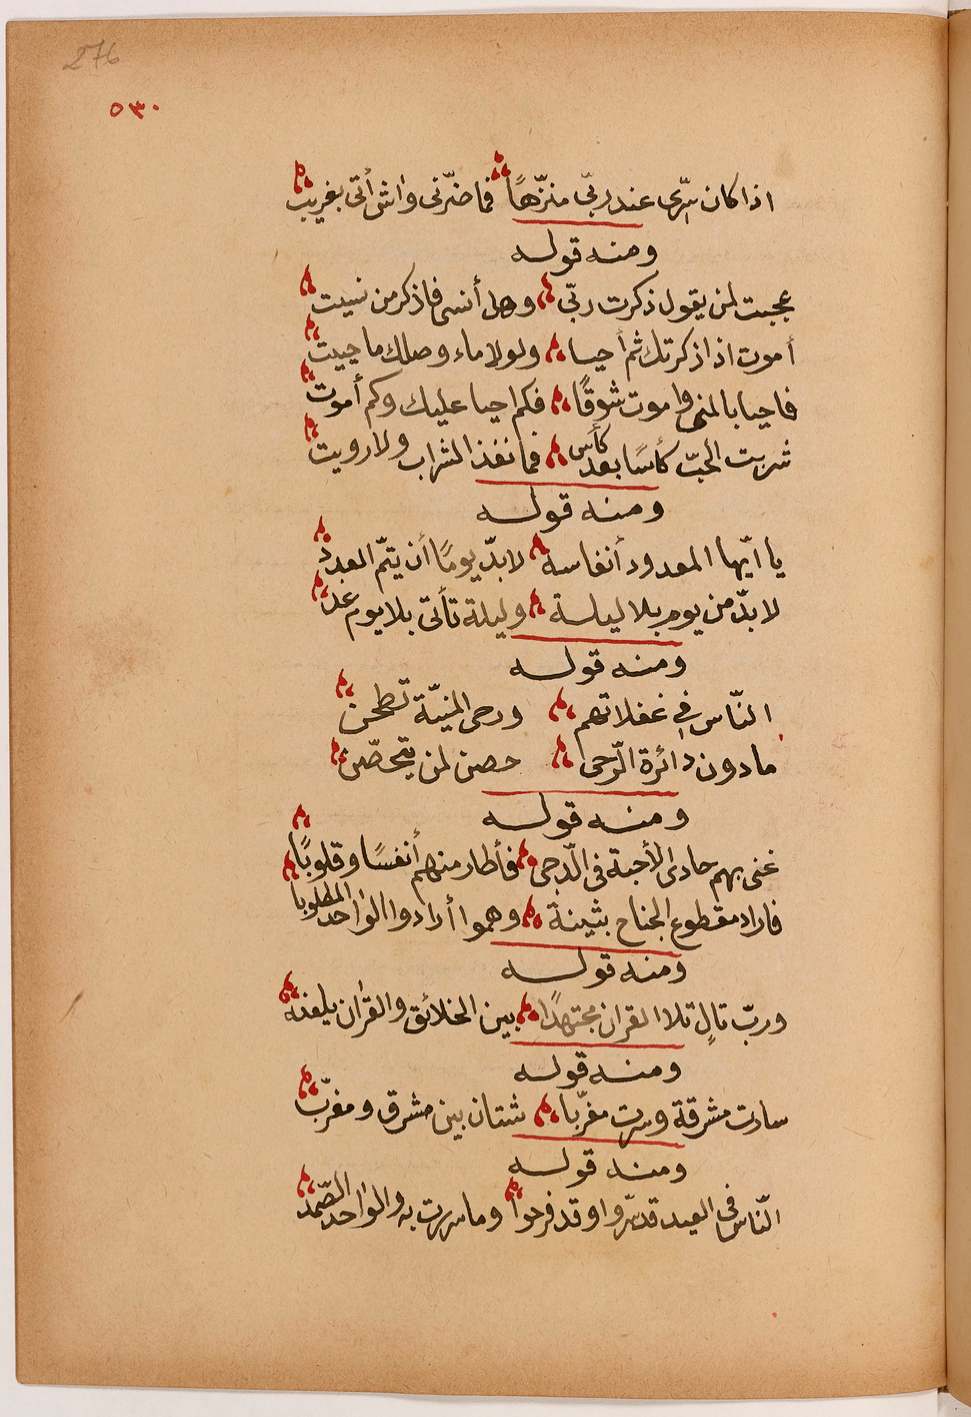 276
٥٣٠
اذا كان سرّى عند ربّى منزّهًا فما ضرّنى واش أتى بغريب
ومنه قوله
عجبت لمن يقول ذكرت ربّى وهل أنسى فاذكر من نسيت
أموت اذا ذكرتك ثم أحيا ولولا ماء وصلك ما حييت
فاحيا بالمنى واموت شوقًا فكم احيا عليك وكم أموت
شربت الحبّ كأسًا بعد كأس فما نفذ الشراب ولا رويت
ومنه قوله
يا ايّها المعدود أنفاسه لا بدّ يومًا أن يتمّ العدد
لا بدّ من يوم بلا ليلة وليلة تأتى بلا يوم غد
ومنه قوله
النّاس في غفلاتهم ورحى المنيّة تطحن
ما دون دائرة الرّحى حصن لمن يتحصّن
ومنه قوله
غنى بهم حادى الأحبة فى الدّجى فأطار منهم أنفسًا وقلوبًا
فاراد مقطوع الجناح بثينة وهموا أرادوا الواحد المطلوبا
ومنه قوله
وربّ تالٍ تلا القران مجتهدًا بين الخلائق والقرٰان يلعنه
ومنه قوله
سارت مشرقة وسرت مغرّبا شتان بين مشرق ومغرّب
ومنه قوله
النّاس فى العيد قد سرّوا وقد فرحوا وما سررت به والواحد الصّمد